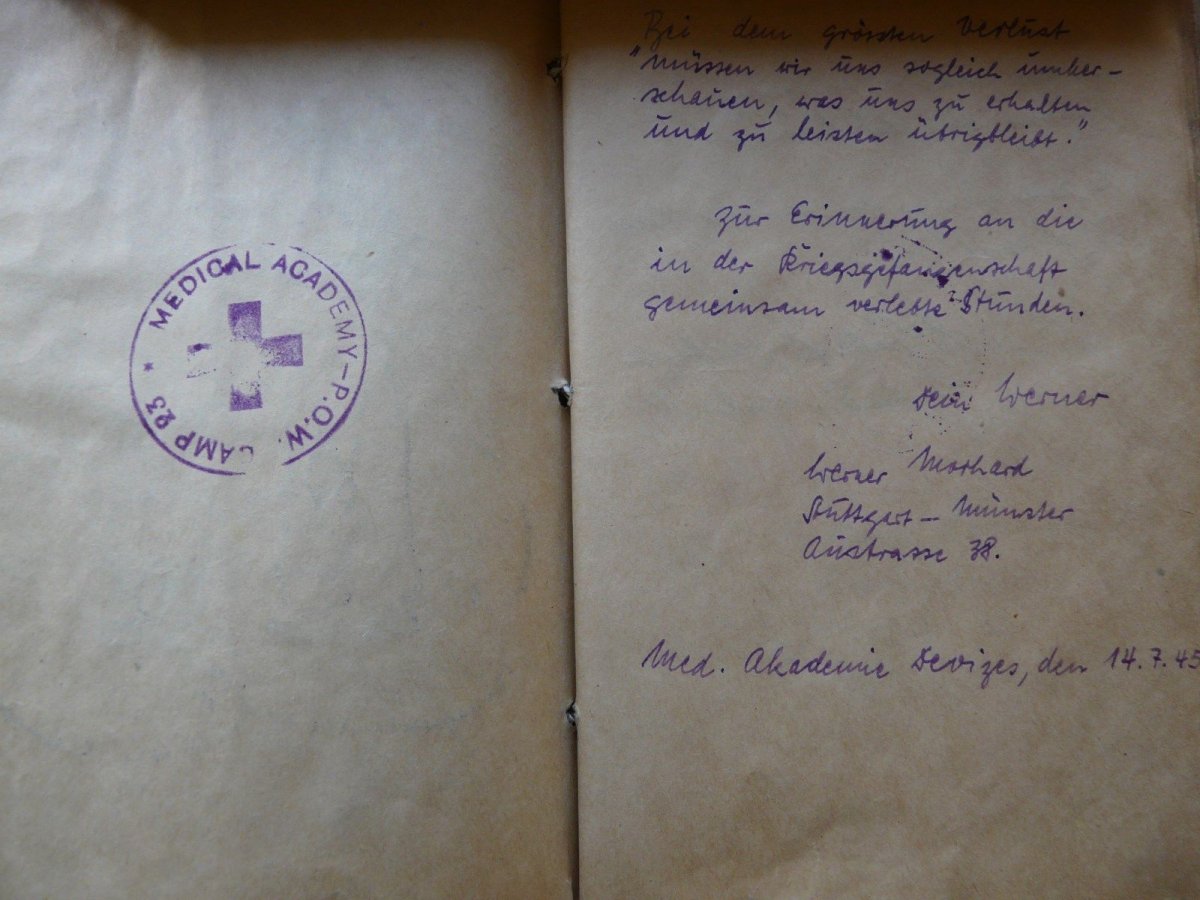 * MEDICAL ACADEMY - P.O.W. CAMP 23
Bei dem grössten Verlust
"müssen wir uns sogleich umher-
schauen, was uns zu erhalten
und zu leisten übrigbleibt."
Zur Erinnerung an die
in der Kriegsgefangenschaft
gemeinsam verlebte Stunden.
Dein Werner
Werner Morhard
Stuttgart - Münster
Austrasse 38.
Med. Akademie Devizes, den 14.7.45